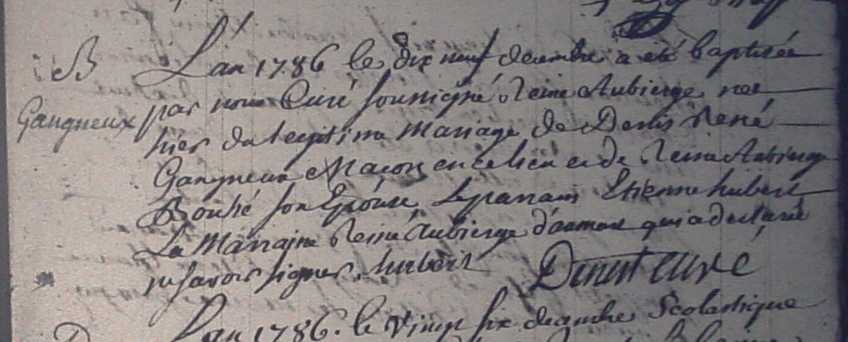 B L'an 1786 le dix neuf decembre a eté baptisée
Gangneux par nous Curé soussigné Reine Aubierge née
hier du legitime Mariage de Denis René
Gangneux Maçon en ce lieu et de Reine Aubierge
son Epouse Le parrain Etienne hubert
La Maraine Reine Aubierge qui a declaré
ne savoir signer. hubert curé
L'an 1786. le Vingt six decembre Scolastique